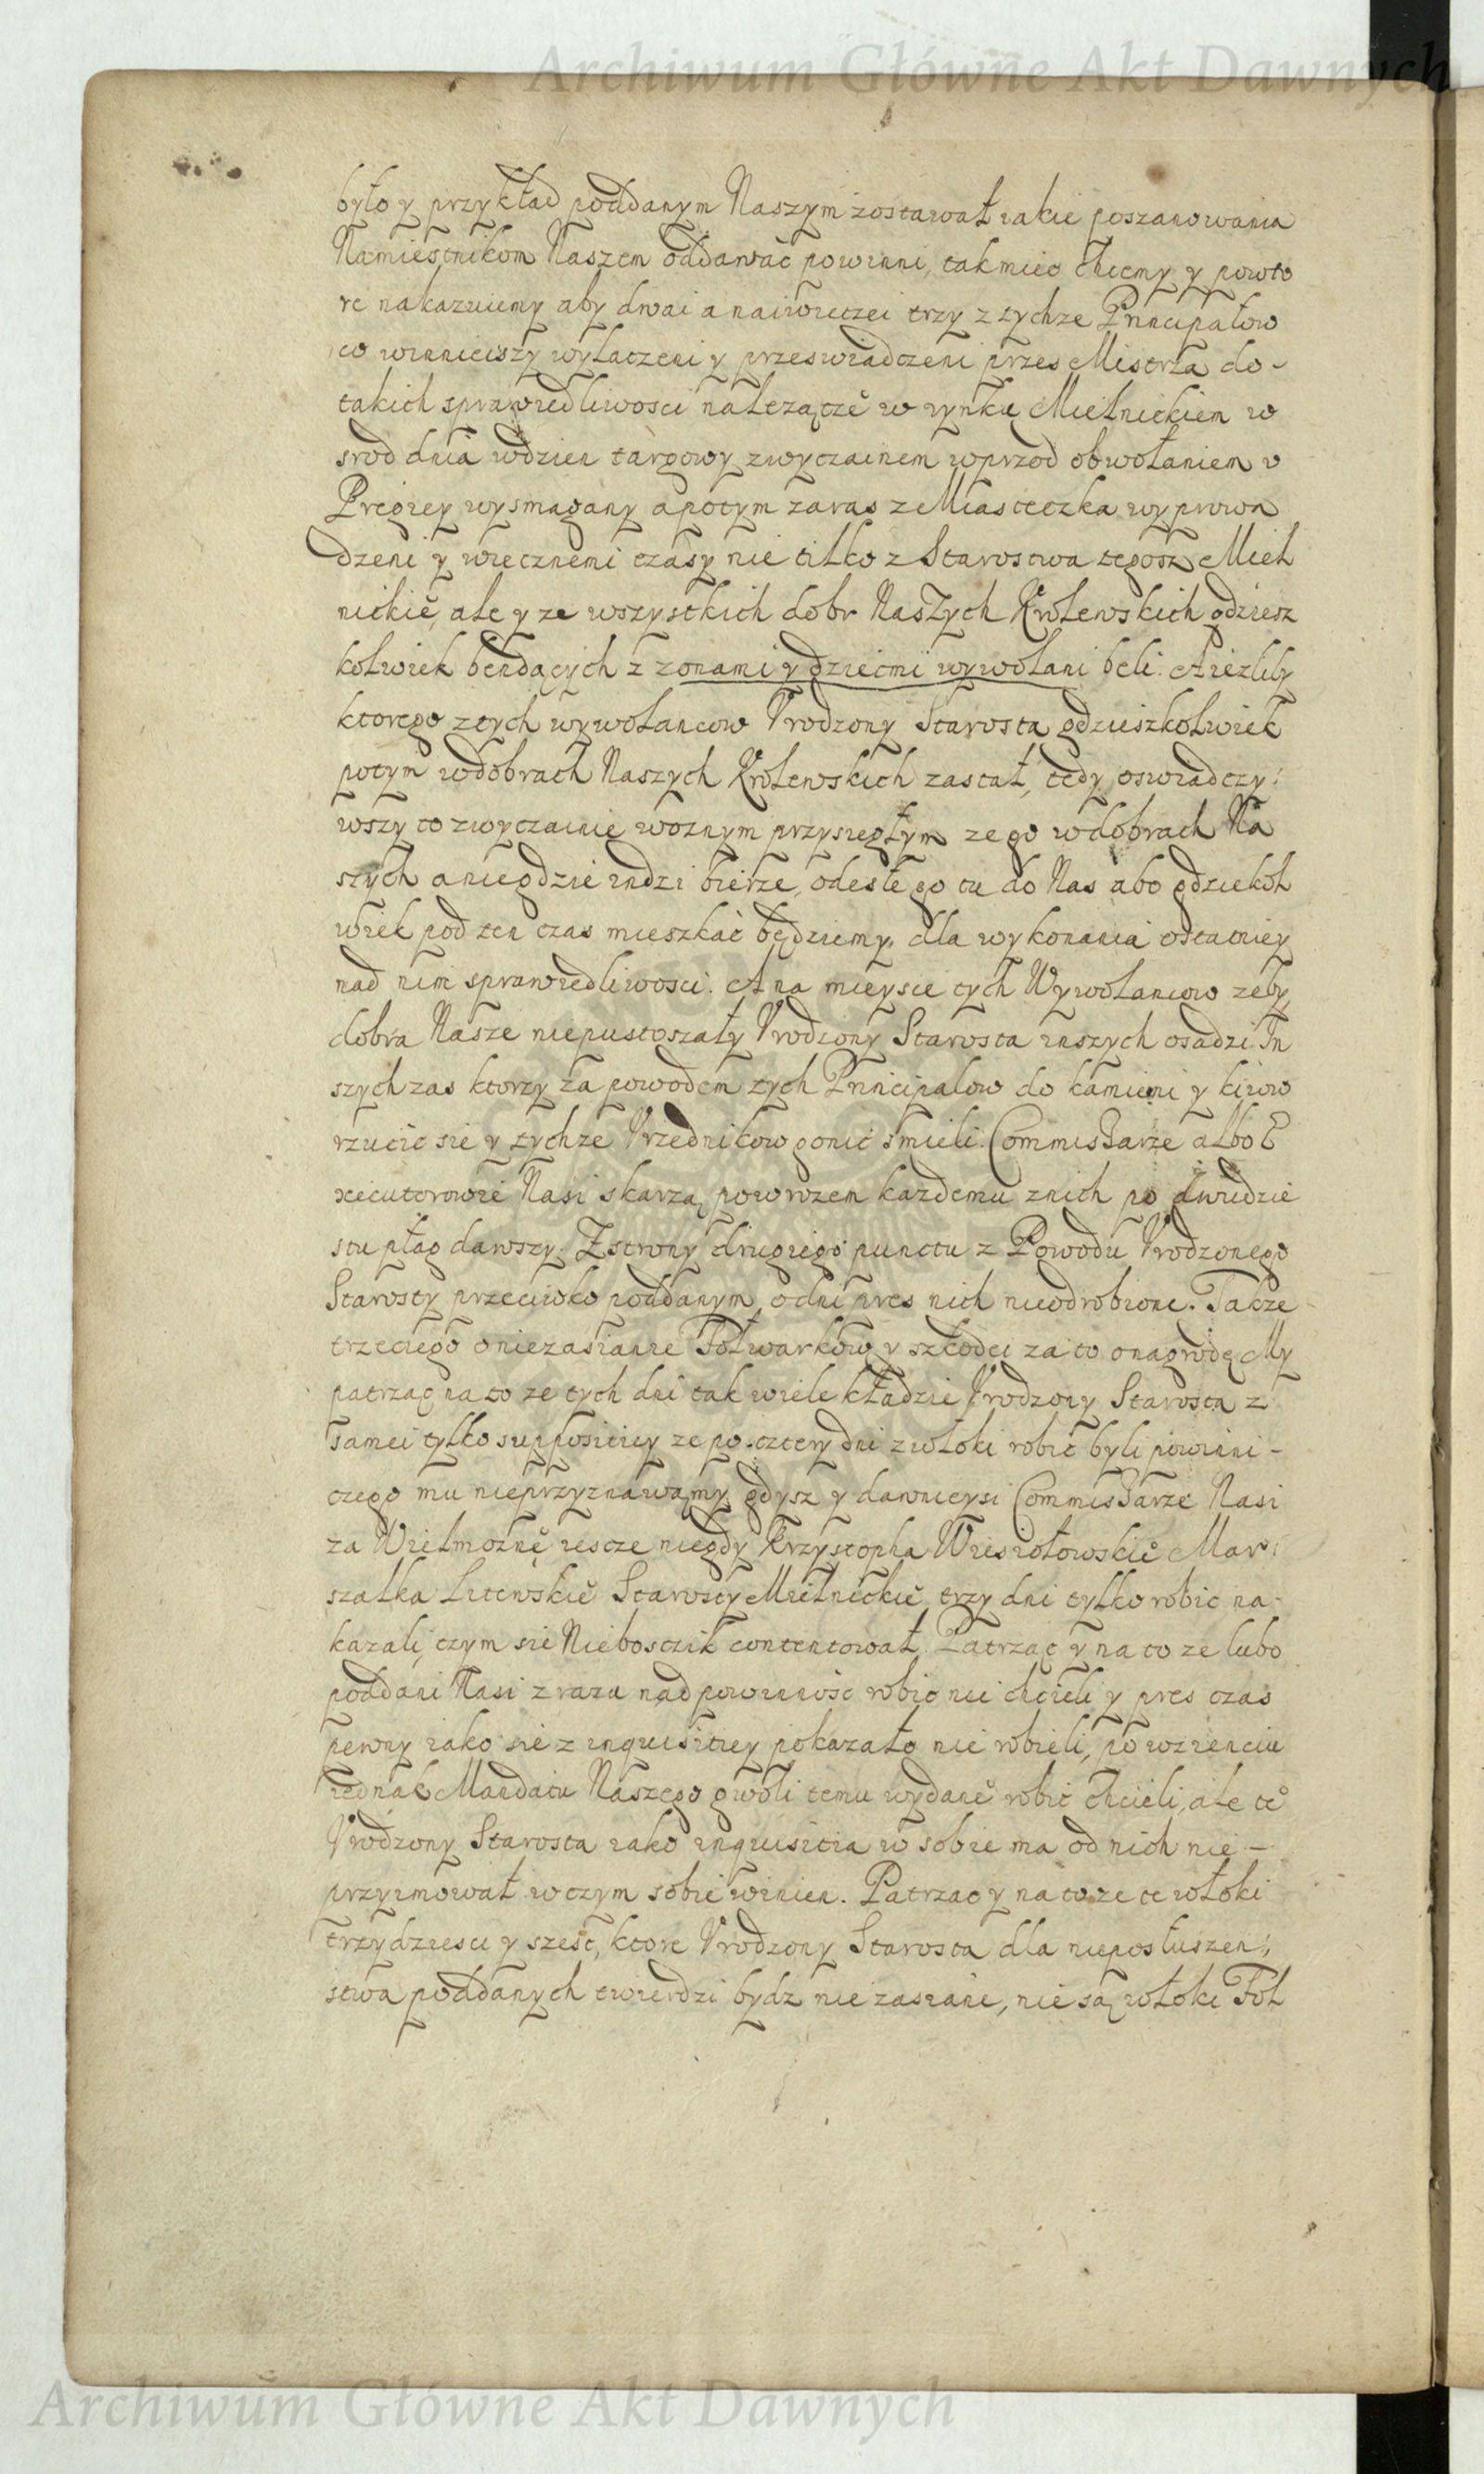 Archiwum Główne Akt Dawnych
było y przykład poddanym Naszym zostawał iakie poszanowania
Namiestnikom Naszem oddawać powinni, tak miec chcemy y powto
re nakazuiemy aby dwai a naiwieczei trzy z tychze Principałow
co winnieiszy wytaczeni y przeswiadczeni przes Mistrza do-
takich sprawiedliwosci należące̊ w rynku Mielnickiem w
srod dnia wdzien targowy zwyczainem wprzod obwołaniem v
Pręgiey wysmagany a potym zaras z Miasteczka wyprowa
dzeni y wiecznemi czasy nie tilko z Starostwa tegosz Miel
nickie̊, ale y ze wszystkich dobr Naszych Krolewskich gdziesz
kolwiek bendących z zonami y dziećmi wywołani beli. A iezliby
ktorego ztych wywołancow Vrodzony Starosta gdzieiszkolwiek
potym wdobrach Naszych Krolewskich zastał, tedy oswiadczy:
wszy to zwyczainie woznym przysięgłym ze go wdobrach Na
szych a niegdzie indzi bierze, odesle go tu do Nas abo gdziekol
wiek pod ten czas mieszkać będziemy, dla wykonania ostatniey
nad nim sprawiedliwosci. A na mieysce tych Wywołancow zeby
dobra Nasze niepustoszały Vrodzony Starosta inszych osadzi In
szych zas ktorzy za powodem tych Principalow do kamieni y kiiow
rzucic sie y tychze Vrzednikow gonić smieli. Commissarze albo E
xecutorowie Nasi skarzą powrozem kazdemu znich po dwudzie
stu płag dawszy. Z strony drugiego punctu z Powodu Vrodzonego
Starosty przeciwko poddanym, o dni pres nich nieodrobione. Takze
trzeciego o niezasianie Folwarkow y szkodei za to o nagrodę My
patrząc na to ze tych dni tak wiele kładzie Vrodzony Starosta z
samei tylko suppositiey ze po cztery dni z włoki robić byli powinni -
czego mu nieprzyznawamy gdysz y dawnieysi Commissarze Nasi
za Wielmożne̊ iescze niegdy Krzysztopha Wiesiołowskie̊ Mar:
szałka Litewskie̊ Starosty Mielnickie̊ trzy dni tylko robic na-
kazali, czym sie Nieboszczik contentował. Patrząc y na to ze lubo
poddani Nasi z razu nad powinnośc robic nie chcieli y pres czas
pewny iako sie z inquisitiey pokazało nie robieli, po wzienciu
iednak Mandatu Naszego gwoli temu wydane̊ robić chcieli, ale te̊
Vrodzony Starosta iako inquisitia w sobie ma od nich nie -
przyimował w czym sobie winien. Patrzac y na to ze te włoki
trzydziesci y szesć, ktore Vrodzony Starosta dla nieposłuszen:
stwa poddanych twierdzi bydz nie zasiane, nie są włoki Fol
Archiwum Główne Akt Dawnych